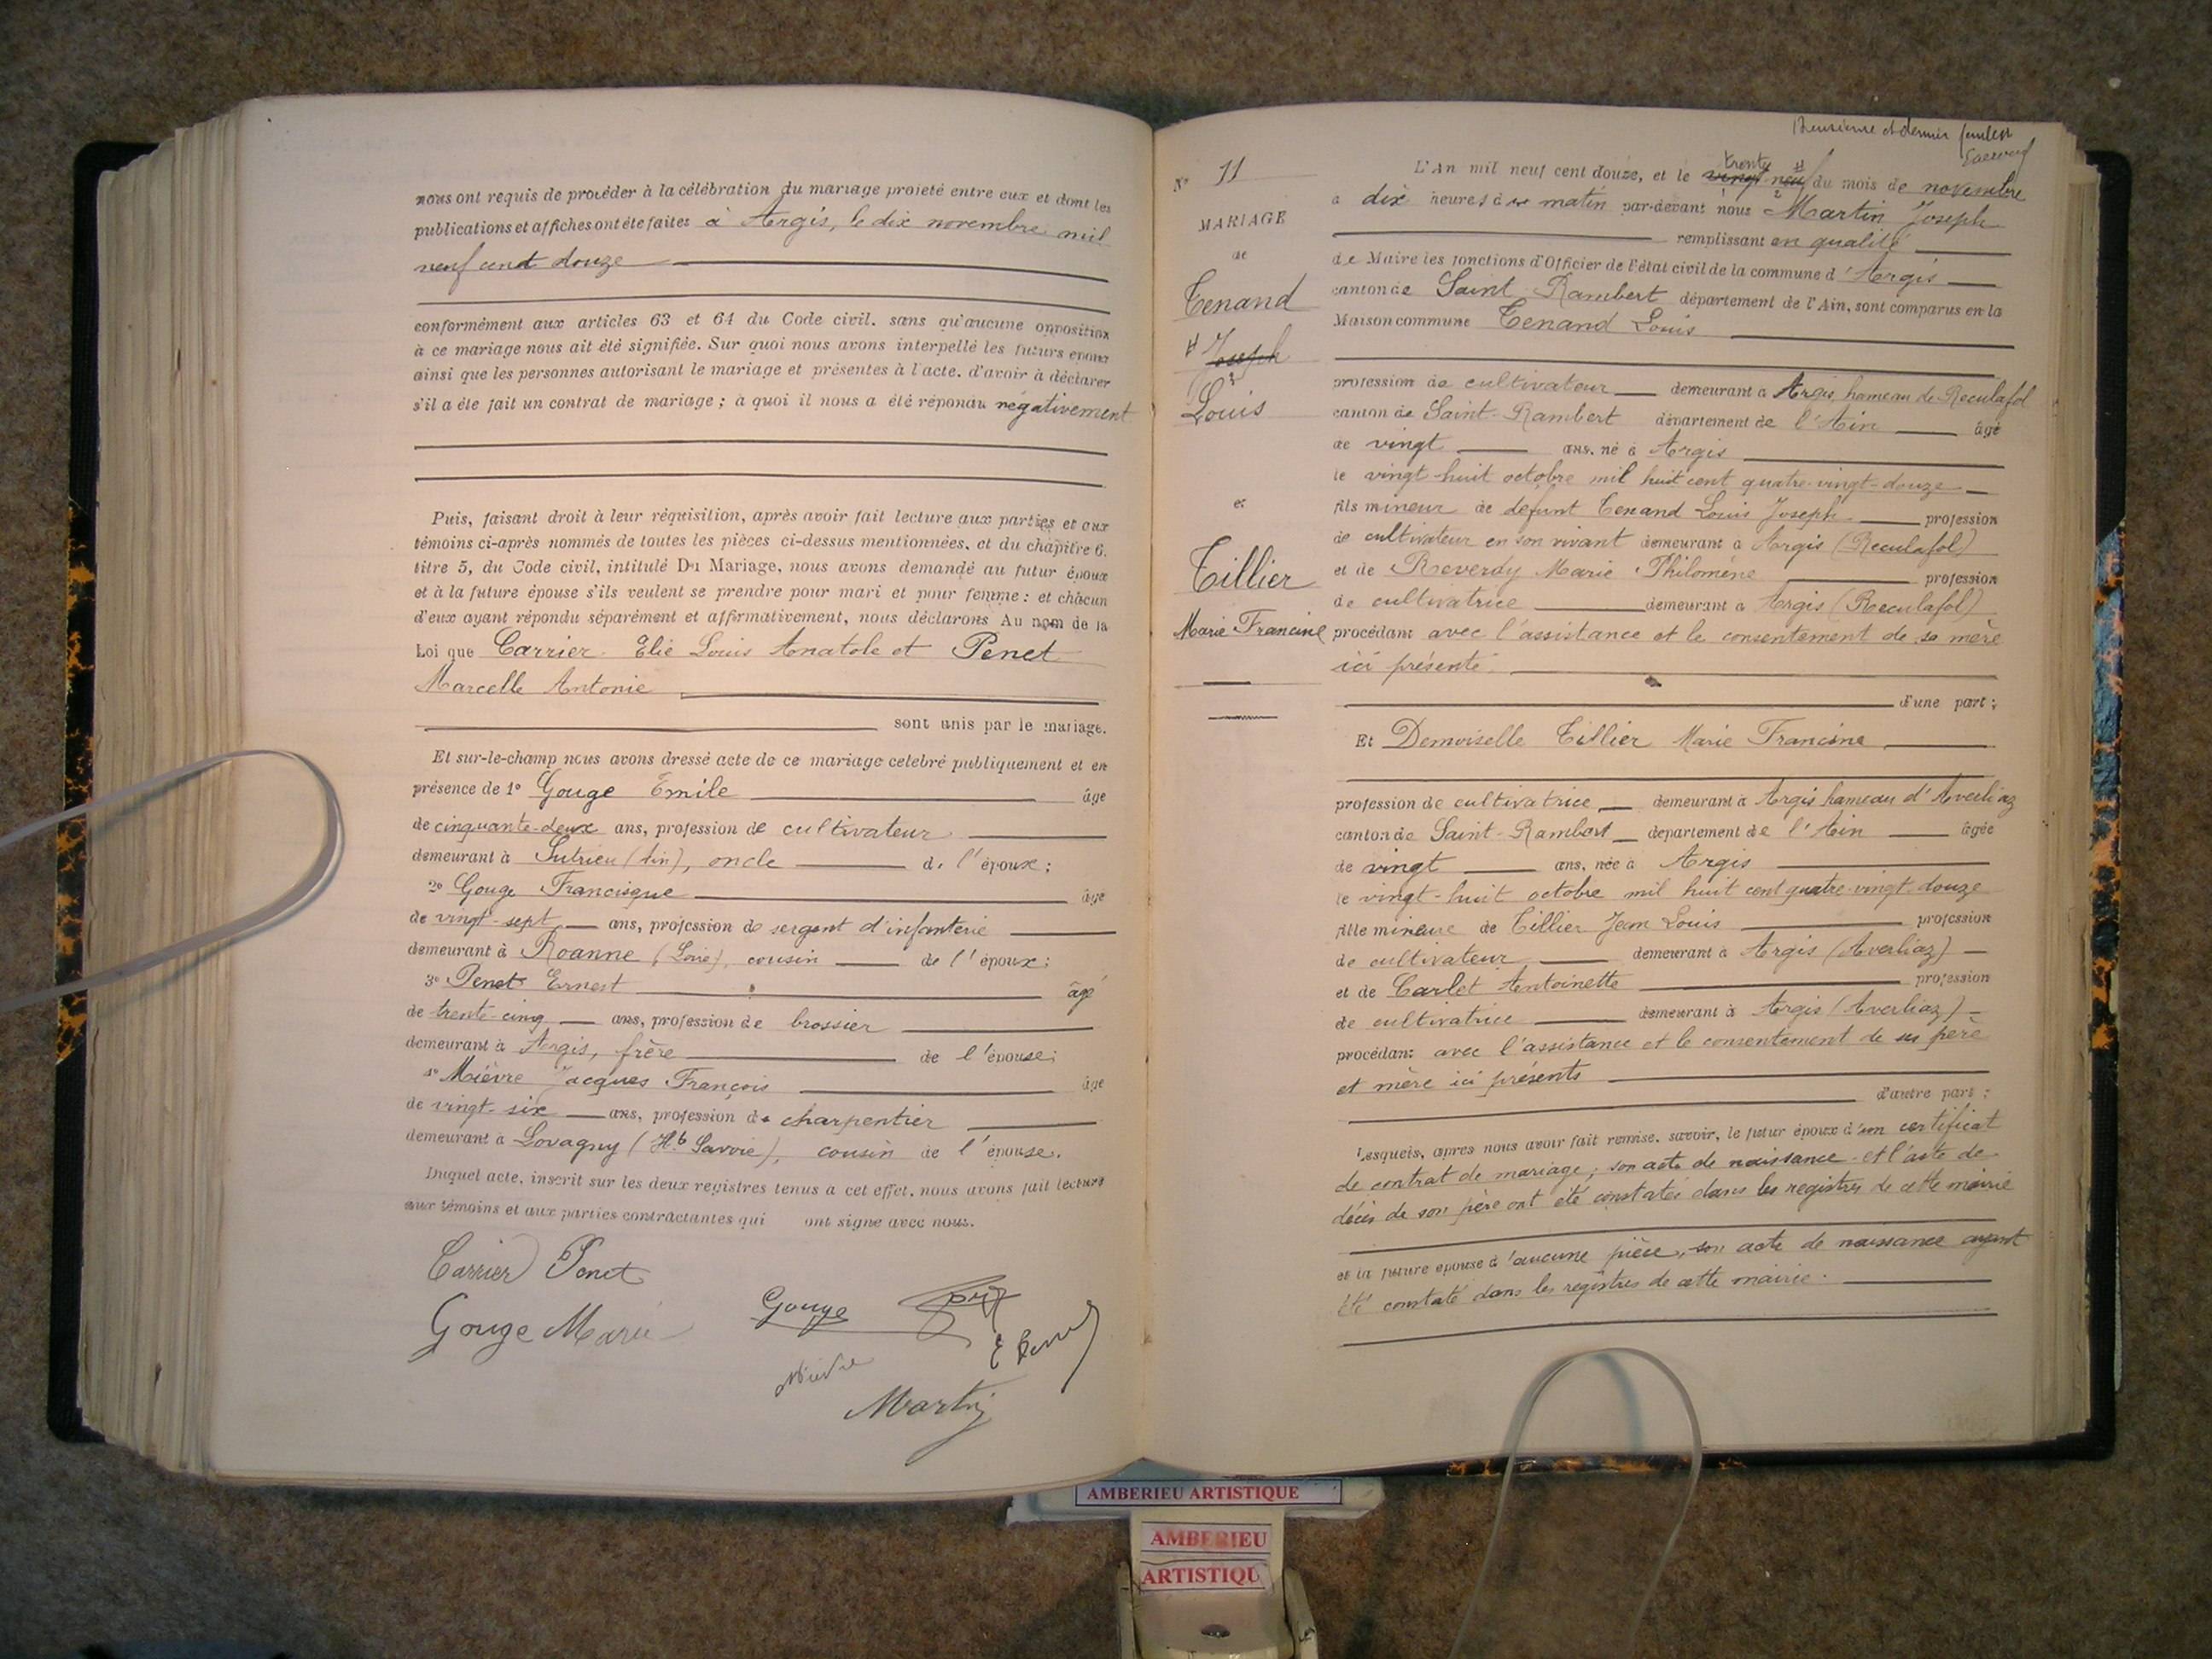 nous ont requis de procéder à la célébration du mariage projeté entre eux et dont les
publications et affiches ont été faites à Argis, le dix novembre mil
neuf cent douze
conformément aux articles 63 et 64 du Code civil, sans qu'aucune opposition
à ce mariage nous ait été signifiée. Sur quoi nous avons interpellé les futurs époux
ainsi que les personnes autorisant le mariage et présentes à l'acte, d'avoir à déclarer
s'il a été fait un contrat de mariage ; à quoi il nous a été répondu négativement
Puis, faisant droit à leur réquisition, après avoir fait lecture aux parties et aux
témoins ci-après nommés de toutes les pièces ci-dessus mentionnées, et du chapitre 6,
titre 5, du Code civil, intitulé Du Mariage, nous avons demandé au futur époux
et à la future épouse s'ils veulent se prendre pour mari et pour femme : et chacun
d'eux ayant répondu séparément et affirmativement, nous déclarons Au nom de la
Loi que Carrier Elie Louis Anatole et Penet
Marcelle Antonie
sont unis par le mariage.
Et sur-le-champ nous avons dressé acte de ce mariage célébré publiquement et en
présence de 1° Gouge Emile âgé
de cinquante-deux ans, profession de cultivateur
demeurant à Sutrieu (Ain), oncle de l'époux ;
2° Gouge Francisque âgé
de vingt-sept ans, profession de sergent d'infanterie
demeurant à Roanne (Loire), cousin de l'époux ;
3° Penet Ernest âgé
de trente-cinq ans, profession de brossier
demeurant à Argis, frère de l'épouse ;
4° Mièvre Jacques François âgé
de vingt-six ans, profession de charpentier
demeurant à Lovagny (Hte Savoie), cousin de l'épouse.
Duquel acte, inscrit sur les deux registres tenus à cet effet, nous avons fait lecture
aux témoins et aux parties contractantes qui ont signé avec nous.
Carrier Penet
Gouge Marie Gouge
Martin
Deuxième et dernier feuillet
N° 11
MARIAGE
de
Tenand
Joseph
Louis
et
Tillier
Marie Francine
trente
L'An mil neuf cent douze, et le vingt neuf du mois de novembre
à dix heures du matin par-devant nous Martin Joseph
remplissant en qualité
de Maire les fonctions d'Officier de l'état civil de la commune d'Argis
canton de Saint Rambert département de l'Ain, sont comparus en la
Maison commune Tenand Louis
profession de cultivateur demeurant à Argis, hameau de Reculafol
canton de Saint-Rambert département de l'Ain âgé
de vingt ans, né à Argis
le vingt-huit octobre mil huit cent quatre-vingt-douze
fils mineur de défunt Tenand Louis Joseph profession
de cultivateur en son vivant demeurant à Argis (Reculafol)
et de Reverdy Marie Philomène profession
de cultivatrice demeurant à Argis (Reculafol)
procédant avec l'assistance et le consentement de sa mère
ici présente
d'une part ;
Et Demoiselle Tillier Marie Francine
profession de cultivatrice demeurant à Argis hameau d'Averliaz
canton de Saint-Rambert département de l'Ain âgée
de vingt ans, née à Argis
le vingt-huit octobre mil huit cent quatre-vingt-douze
fille mineure de Tillier Jean Louis profession
de cultivateur demeurant à Argis (Averliaz)
et de Carlet Antoinette profession
de cultivatrice demeurant à Argis (Averliaz)
procédant avec l'assistance et le consentement de ses père
et mère ici présents
d'autre part ;
Lesquels, après nous avoir fait remise, savoir, le futur époux d'un certificat
de contrat de mariage ; son acte de naissance et l'acte de
décès de son père ont été constatés dans les registres de cette mairie
et la future épouse d'aucune pièce, son acte de naissance ayant
été constaté dans les registres de cette mairie.
AMBERIEU ARTISTIQUE
AMBERIEU
ARTISTIQU